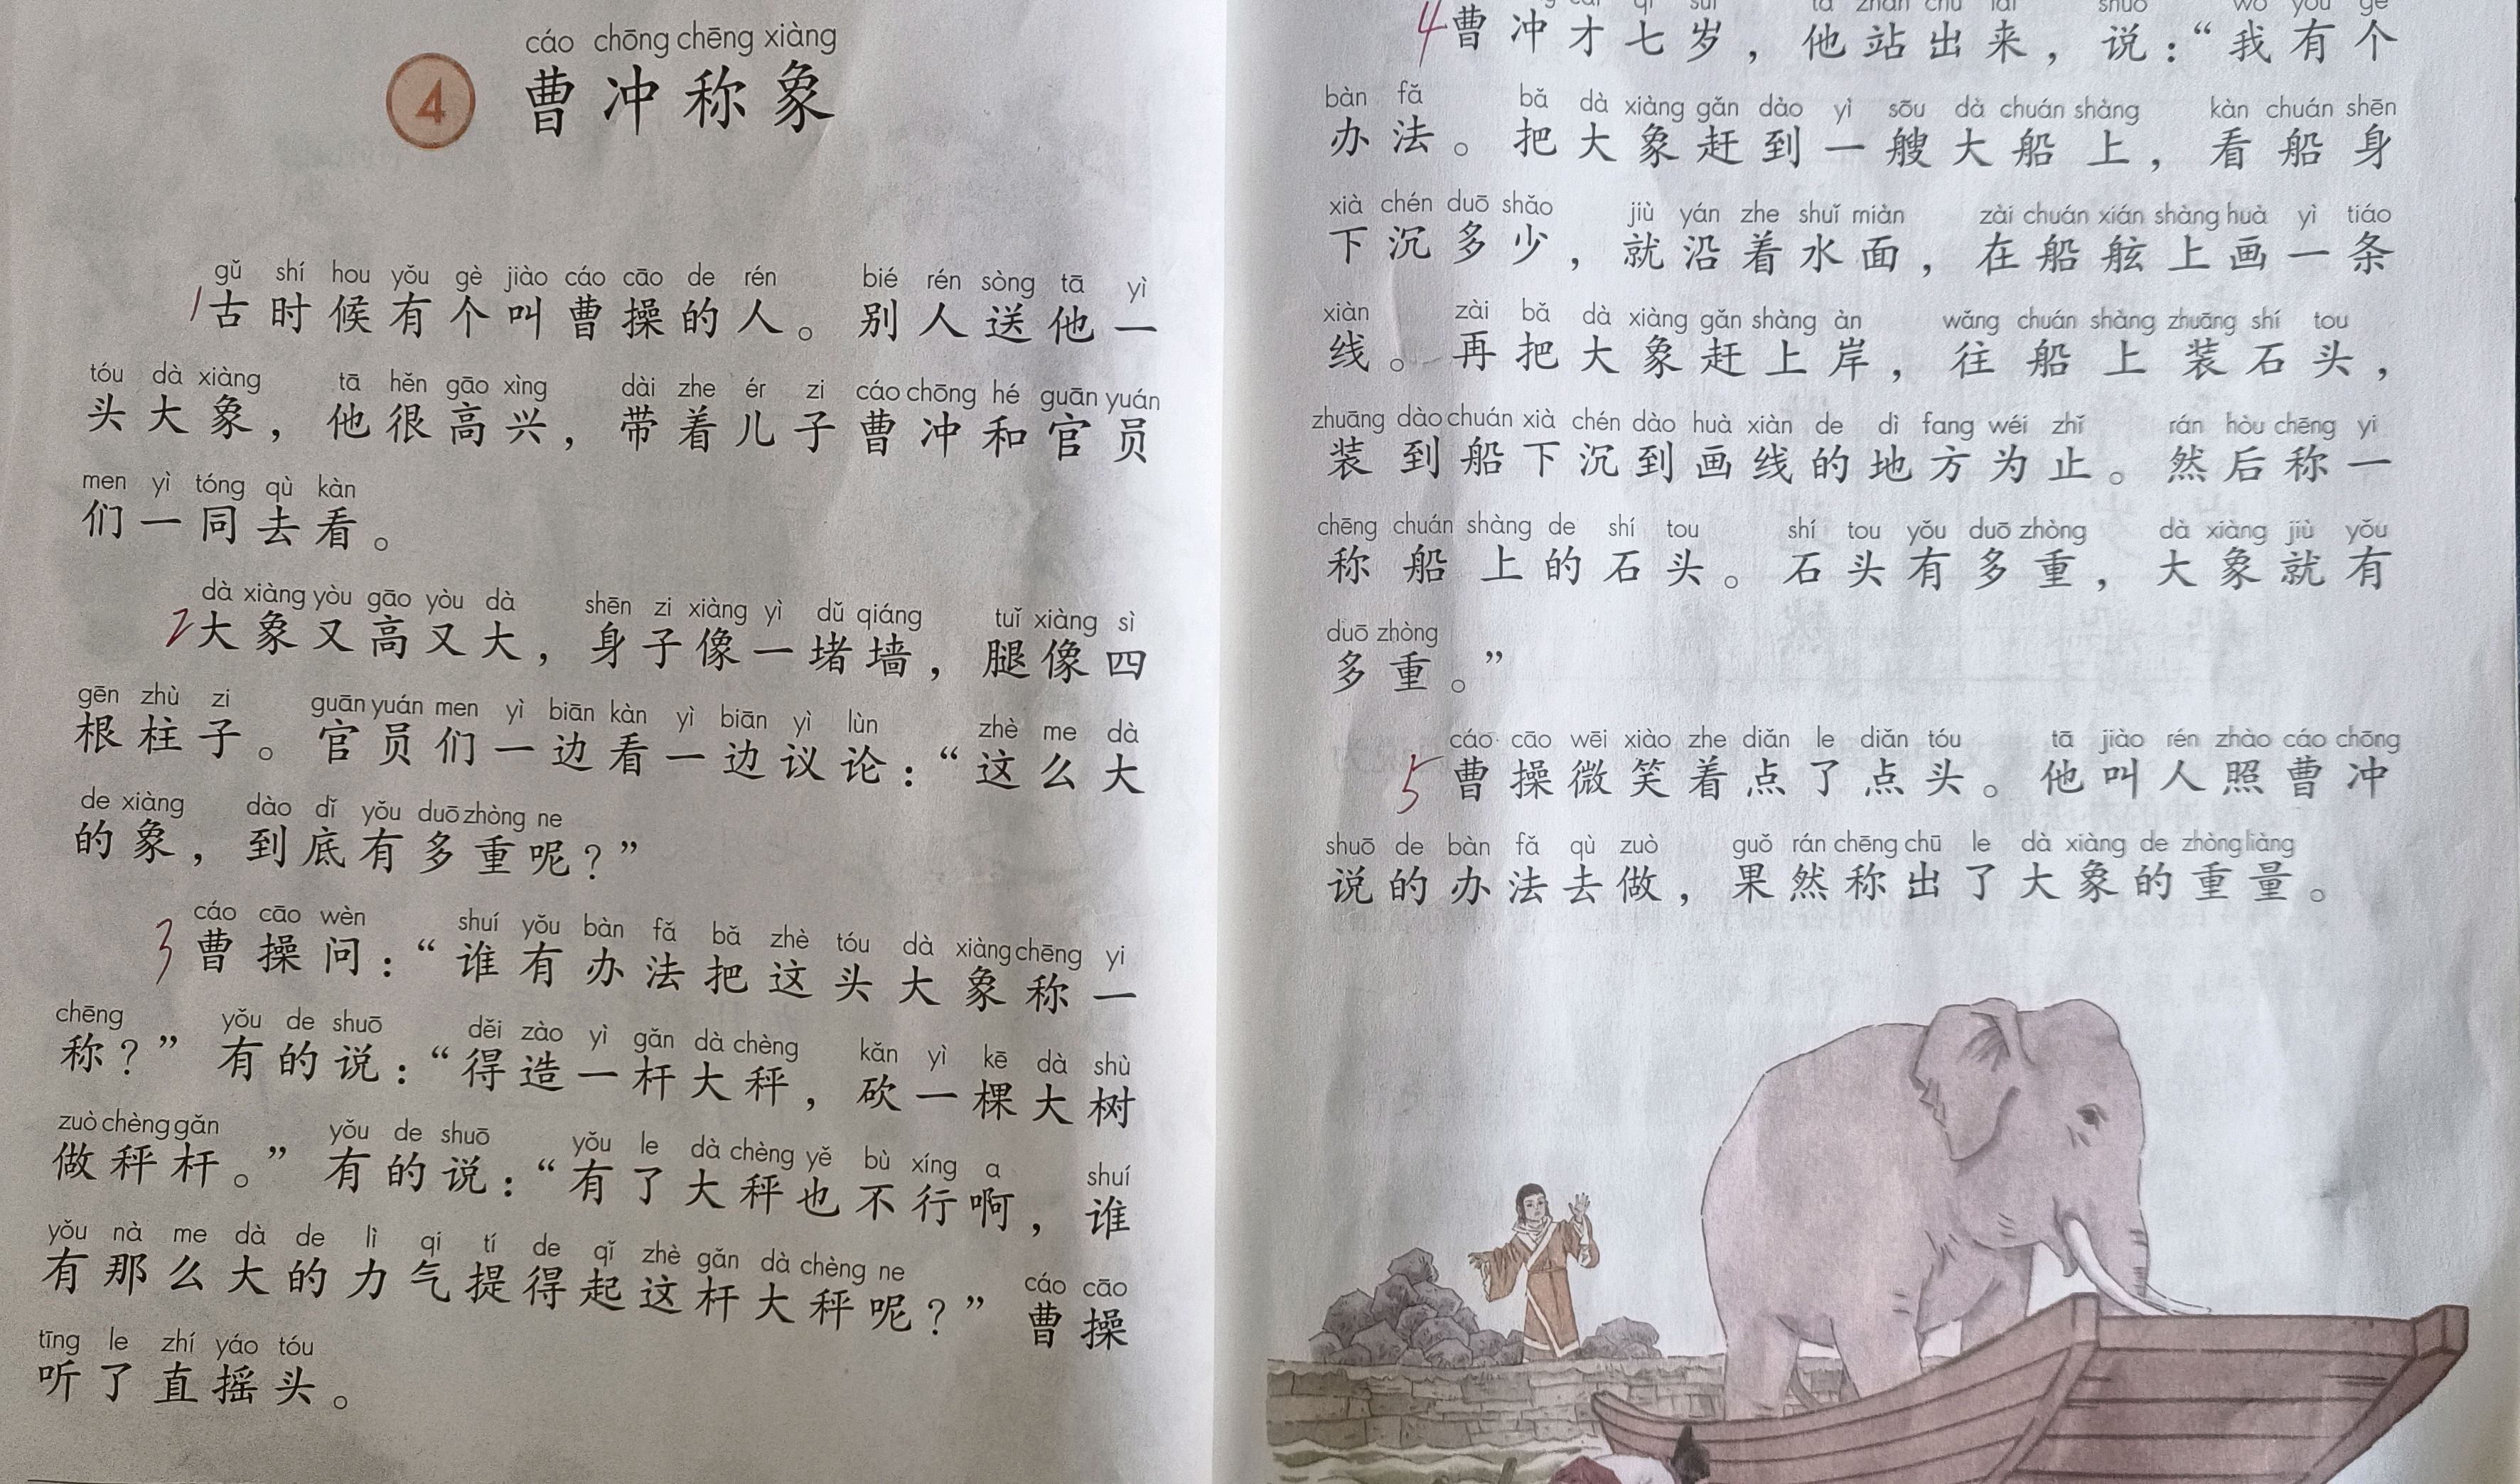 cáo chōng chēng xiàng
4 曹冲称象
gǔ shí hou yǒu gè jiào cáo cāo de rén bié rén sòng tā yì
1 古时候有个叫曹操的人。别人送他一
tóu dà xiàng tā hěn gāo xìng dài zhe ér zi cáo chōng hé guān yuán
头大象，他很高兴，带着儿子曹冲和官员
men yì tóng qù kàn
们一同去看。
dà xiàng yòu gāo yòu dà shēn zi xiàng yì dǔ qiáng tuǐ xiàng sì
2 大象又高又大，身子像一堵墙，腿像四
gēn zhù zi guān yuán men yì biān kàn yì biān yì lùn zhè me dà
根柱子。官员们一边看一边议论：“这么大
de xiàng dào dǐ yǒu duō zhòng ne
的象，到底有多重呢？”
cáo cāo wèn shuí yǒu bàn fǎ bǎ zhè tóu dà xiàng chēng yi
3 曹操问：“谁有办法把这头大象称一
chēng yǒu de shuō děi zào yì gǎn dà chèng kǎn yì kē dà shù
称？”有的说：“得造一杆大秤，砍一棵大树
zuò chèng gǎn yǒu de shuō yǒu le dà chèng yě bù xíng a shuí
做秤杆。”有的说：“有了大秤也不行啊，谁
yǒu nà me dà de lì qi tí de qǐ zhè gǎn dà chèng ne cáo cāo
有那么大的力气提得起这杆大秤呢？”曹操
tīng le zhí yáo tóu
听了直摇头。
4 曹冲才七岁，他站出来，说：“我有个
bàn fǎ bǎ dà xiàng gǎn dào yì sōu dà chuán shàng kàn chuán shēn
办法。把大象赶到一艘大船上，看船身
xià chén duō shǎo jiù yán zhe shuǐ miàn zài chuán xián shàng huà yì tiáo
下沉多少，就沿着水面，在船舷上画一条
xiàn zài bǎ dà xiàng gǎn shàng àn wǎng chuán shàng zhuāng shí tou
线。再把大象赶上岸，往船上装石头，
zhuāng dào chuán xià chén dào huà xiàn de dì fang wéi zhǐ rán hòu chēng yi
装到船下沉到画线的地方为止。然后称一
chēng chuán shàng de shí tou shí tou yǒu duō zhòng dà xiàng jiù yǒu
称船上的石头。石头有多重，大象就有
duō zhòng
多重。”
cáo cāo wēi xiào zhe diǎn le diǎn tóu tā jiào rén zhào cáo chōng
5 曹操微笑着点了点头。他叫人照曹冲
shuō de bàn fǎ qù zuò guǒ rán chēng chū le dà xiàng de zhòng liàng
说的办法去做，果然称出了大象的重量。